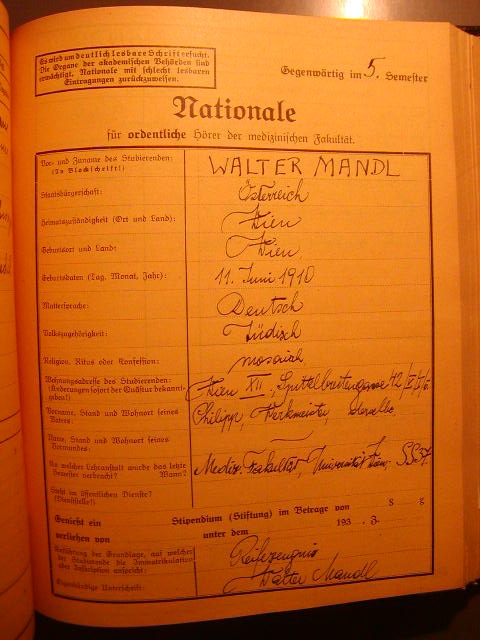 Es wird um deutlich lesbare Schrift ersucht.
Die Organe der akademischen Behörden sind
ermächtigt, Nationale mit schlecht lesbaren
Eintragungen zurückzuweisen.
Gegenwärtig im 5. Semester
Nationale
für ordentliche Hörer der medizinischen Fakultät.
Vor- und Zuname des Studierenden: WALTER MANDL
(In Blockschrift!)
Staatsbürgerschaft: Österreich
Heimatzuständigkeit (Ort und Land): Wien
Geburtsort und Land: Wien
Geburtsdaten (Tag, Monat, Jahr): 11. Juni 1910
Muttersprache: Deutsch
Volkszugehörigkeit: Jüdisch
Religion, Ritus oder Konfession: mosaisch
Wohnungsadresse des Studierenden: Wien XII,
(Änderungen sofort der Quästur bekannt-
geben!)
Vorname, Stand und Wohnort seines Philipp, Werkmeister, derselbe.
Vaters:
Name, Stand und Wohnort seines
Vormundes:
An welcher Lehranstalt wurde das letzte Mediz. Fakultät, Universität Wien, SS.37.
Semester verbracht? Wann?
Steht im öffentlichen Dienste?
(Dienststelle?)
Genießt ein Stipendium (Stiftung) im Betrage von S g
verliehen von unter dem 193 . Z.
Anführung der Grundlage, auf welcher Reifezeugnis
der Studierende die Immatrikulation
oder Inskription anspricht:
Eigenhändige Unterschrift: Walter Mandl